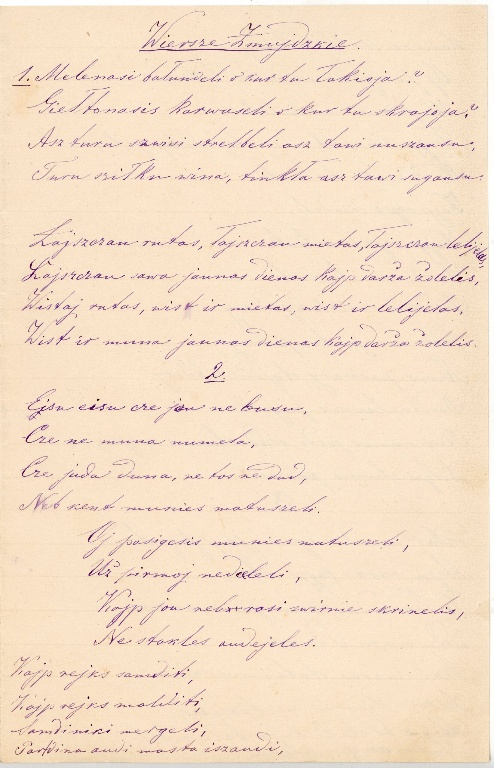 Wiersze Żmujdzkie.
1. Melenasi bałundeli o kur tu łakioja?
Giełtonasis karwaseli o kur tu skrajoja?
Asz turu szwisi strelbeli asz tawi nuszausu,
Turu sziłku wina, tinkła asz tawi sugausu.
Łajszczau rutas, łajszczau mietas, łajszczau lelijełas,
Łajszczau sawa jaunas dienas kajp darża żoleles.
Wistaj rutas, wist ir mietas, wist ir lelijelas,
Wist ir muna jaunas dienas kajp darża żoleles.
2.
Ejsu eisu cze jou ne busu,
Cze ne muna numeta,
Cze juda duna, ne tos ne dud,
Neb kent munies motuszeli.
Oj pasigesis munies matuszeli,
Uż pirmoj nedieleli,
Kajp jou nebxrasi zwirnie skrineles,
Ne stakles audejeles.
Kajp rejks samditi,
Kajp rejks maldíti,
Samdiniki mergeli,
Pardina audi masta iszaudi,